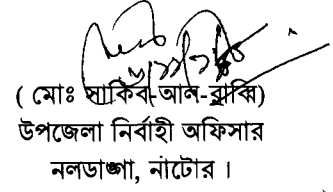 ( মোঃ সাকিব-আল-রাব্বি)
উপজেলা নির্বাহী অফিসার
নলডাঙ্গা, নাটোর ।